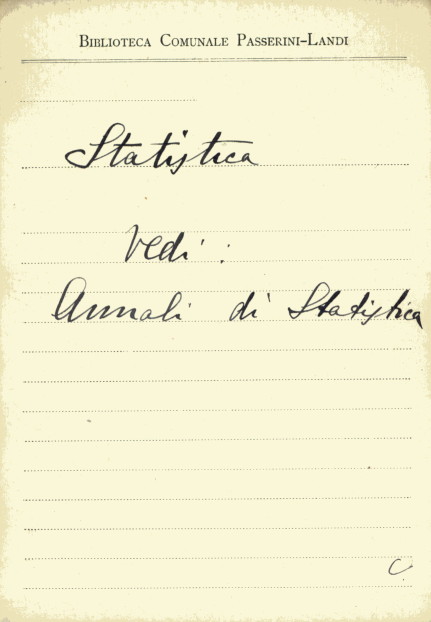 BIBLIOTECA COMUNALE PASSERINI-LANDI
Statistica
Vedi :
Annali di Statistica
C.